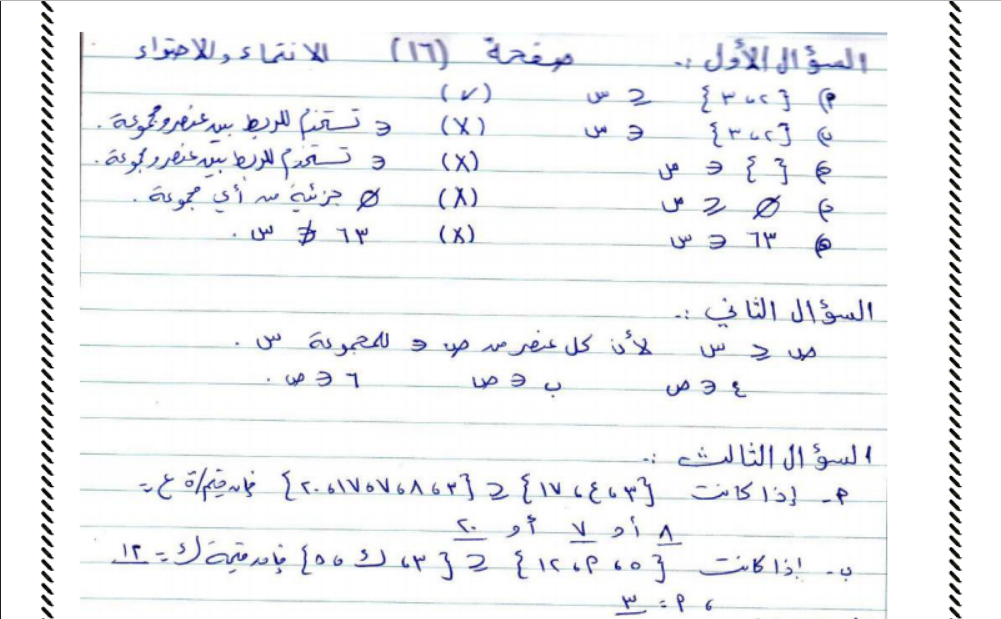 السؤال الأول :. صفحة (١٦) الانتماء والاحتواء
أ) {٢ ، ٣} ⊆ س (√)
ب) {٢ ، ٣} ∋ س (X) ∋ تستخدم للربط بين عنصر ومجموعة .
ج) { } ∋ ص (X) ∋ تستخدم للربط بين عنصر ومجموعة .
د) Ø ⊈ ص (X) Ø جزئية من أي مجموعة .
هـ) ٦٣ ∋ س (X) ٦٣ ∌ س .
السؤال الثاني :.
ص ⊆ س لأن كل عنصر من ص ∋ للمجموعة س .
٤ ∋ ص ب ∋ ص ٦ ∋ ص .
السؤال الثالث :.
أ- إذا كانت {٣ ، ع ، ١٧} ⊆ {٣ ، ٨ ، ٧ ، ١٧ ، ٢٠} فإن قيم/ة ع =
٨ أو ٧ أو ٢٠
ب- إذا كانت {٥ ، م ، ١٢} ⊆ {٣ ، ك ، ٥} فإن قيمة ك = ١٢
، م = ٣